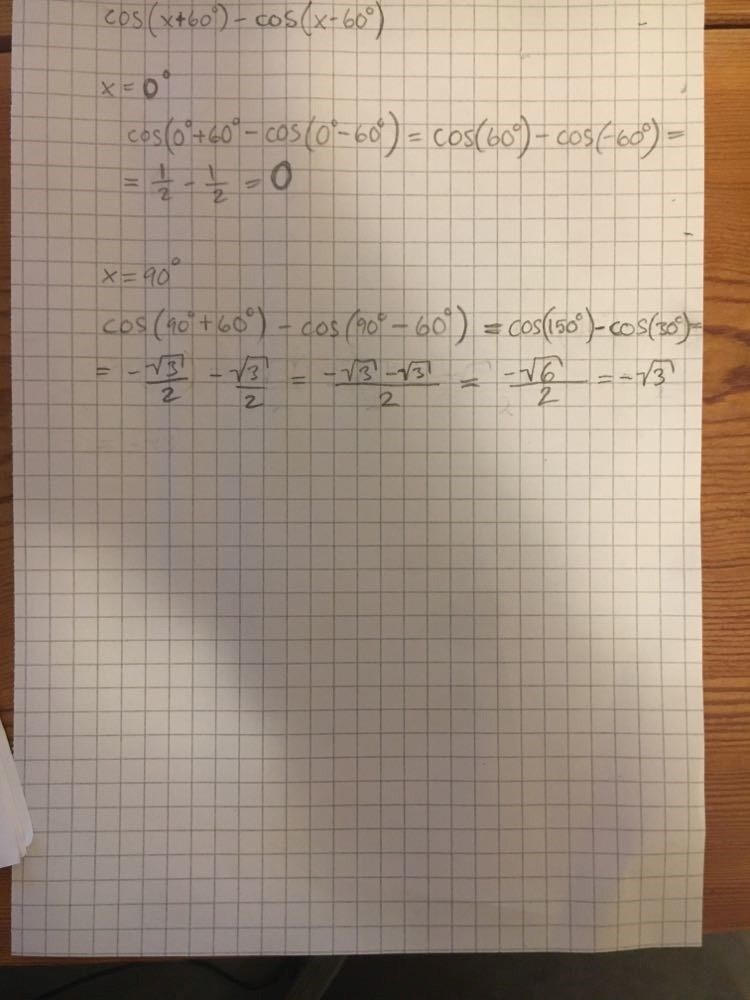 cos(x+60°) - cos(x-60°)
x = 0°
cos(0°+60° - cos(0°-60°) = cos(60°) - cos(-60°) =
= 1/2 - 1/2 = 0
x = 90°
cos(90°+60°) - cos(90°-60°) = cos(150°) - cos(30°) =
= -√3/2 - √3/2 = (-√3 - √3)/2 = -√6/2 = -√3